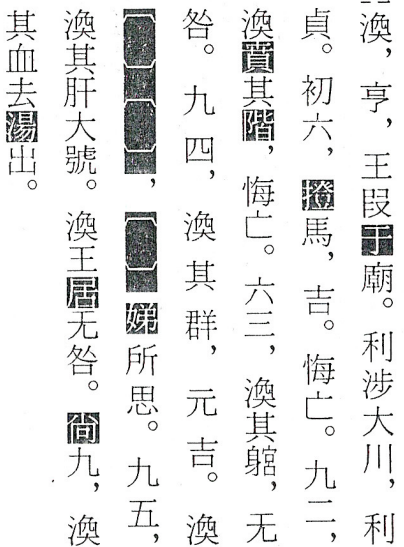 渙，亨，王叚于廟。利涉大川，利
貞。初六，撜馬，吉。悔亡。九二，
渙賁其階，悔亡。六三，渙其躳，无
咎。九四，渙其群，元吉。渙
，娣所思。九五，
渙其肝大號。渙王居无咎。尙九，渙
其血去湯出。